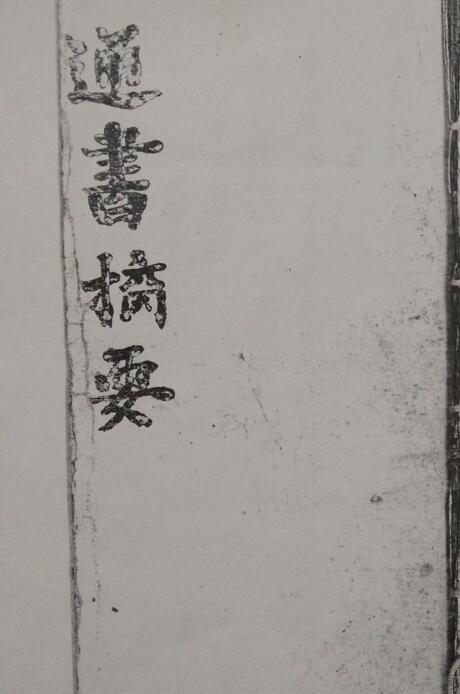 通書摘要